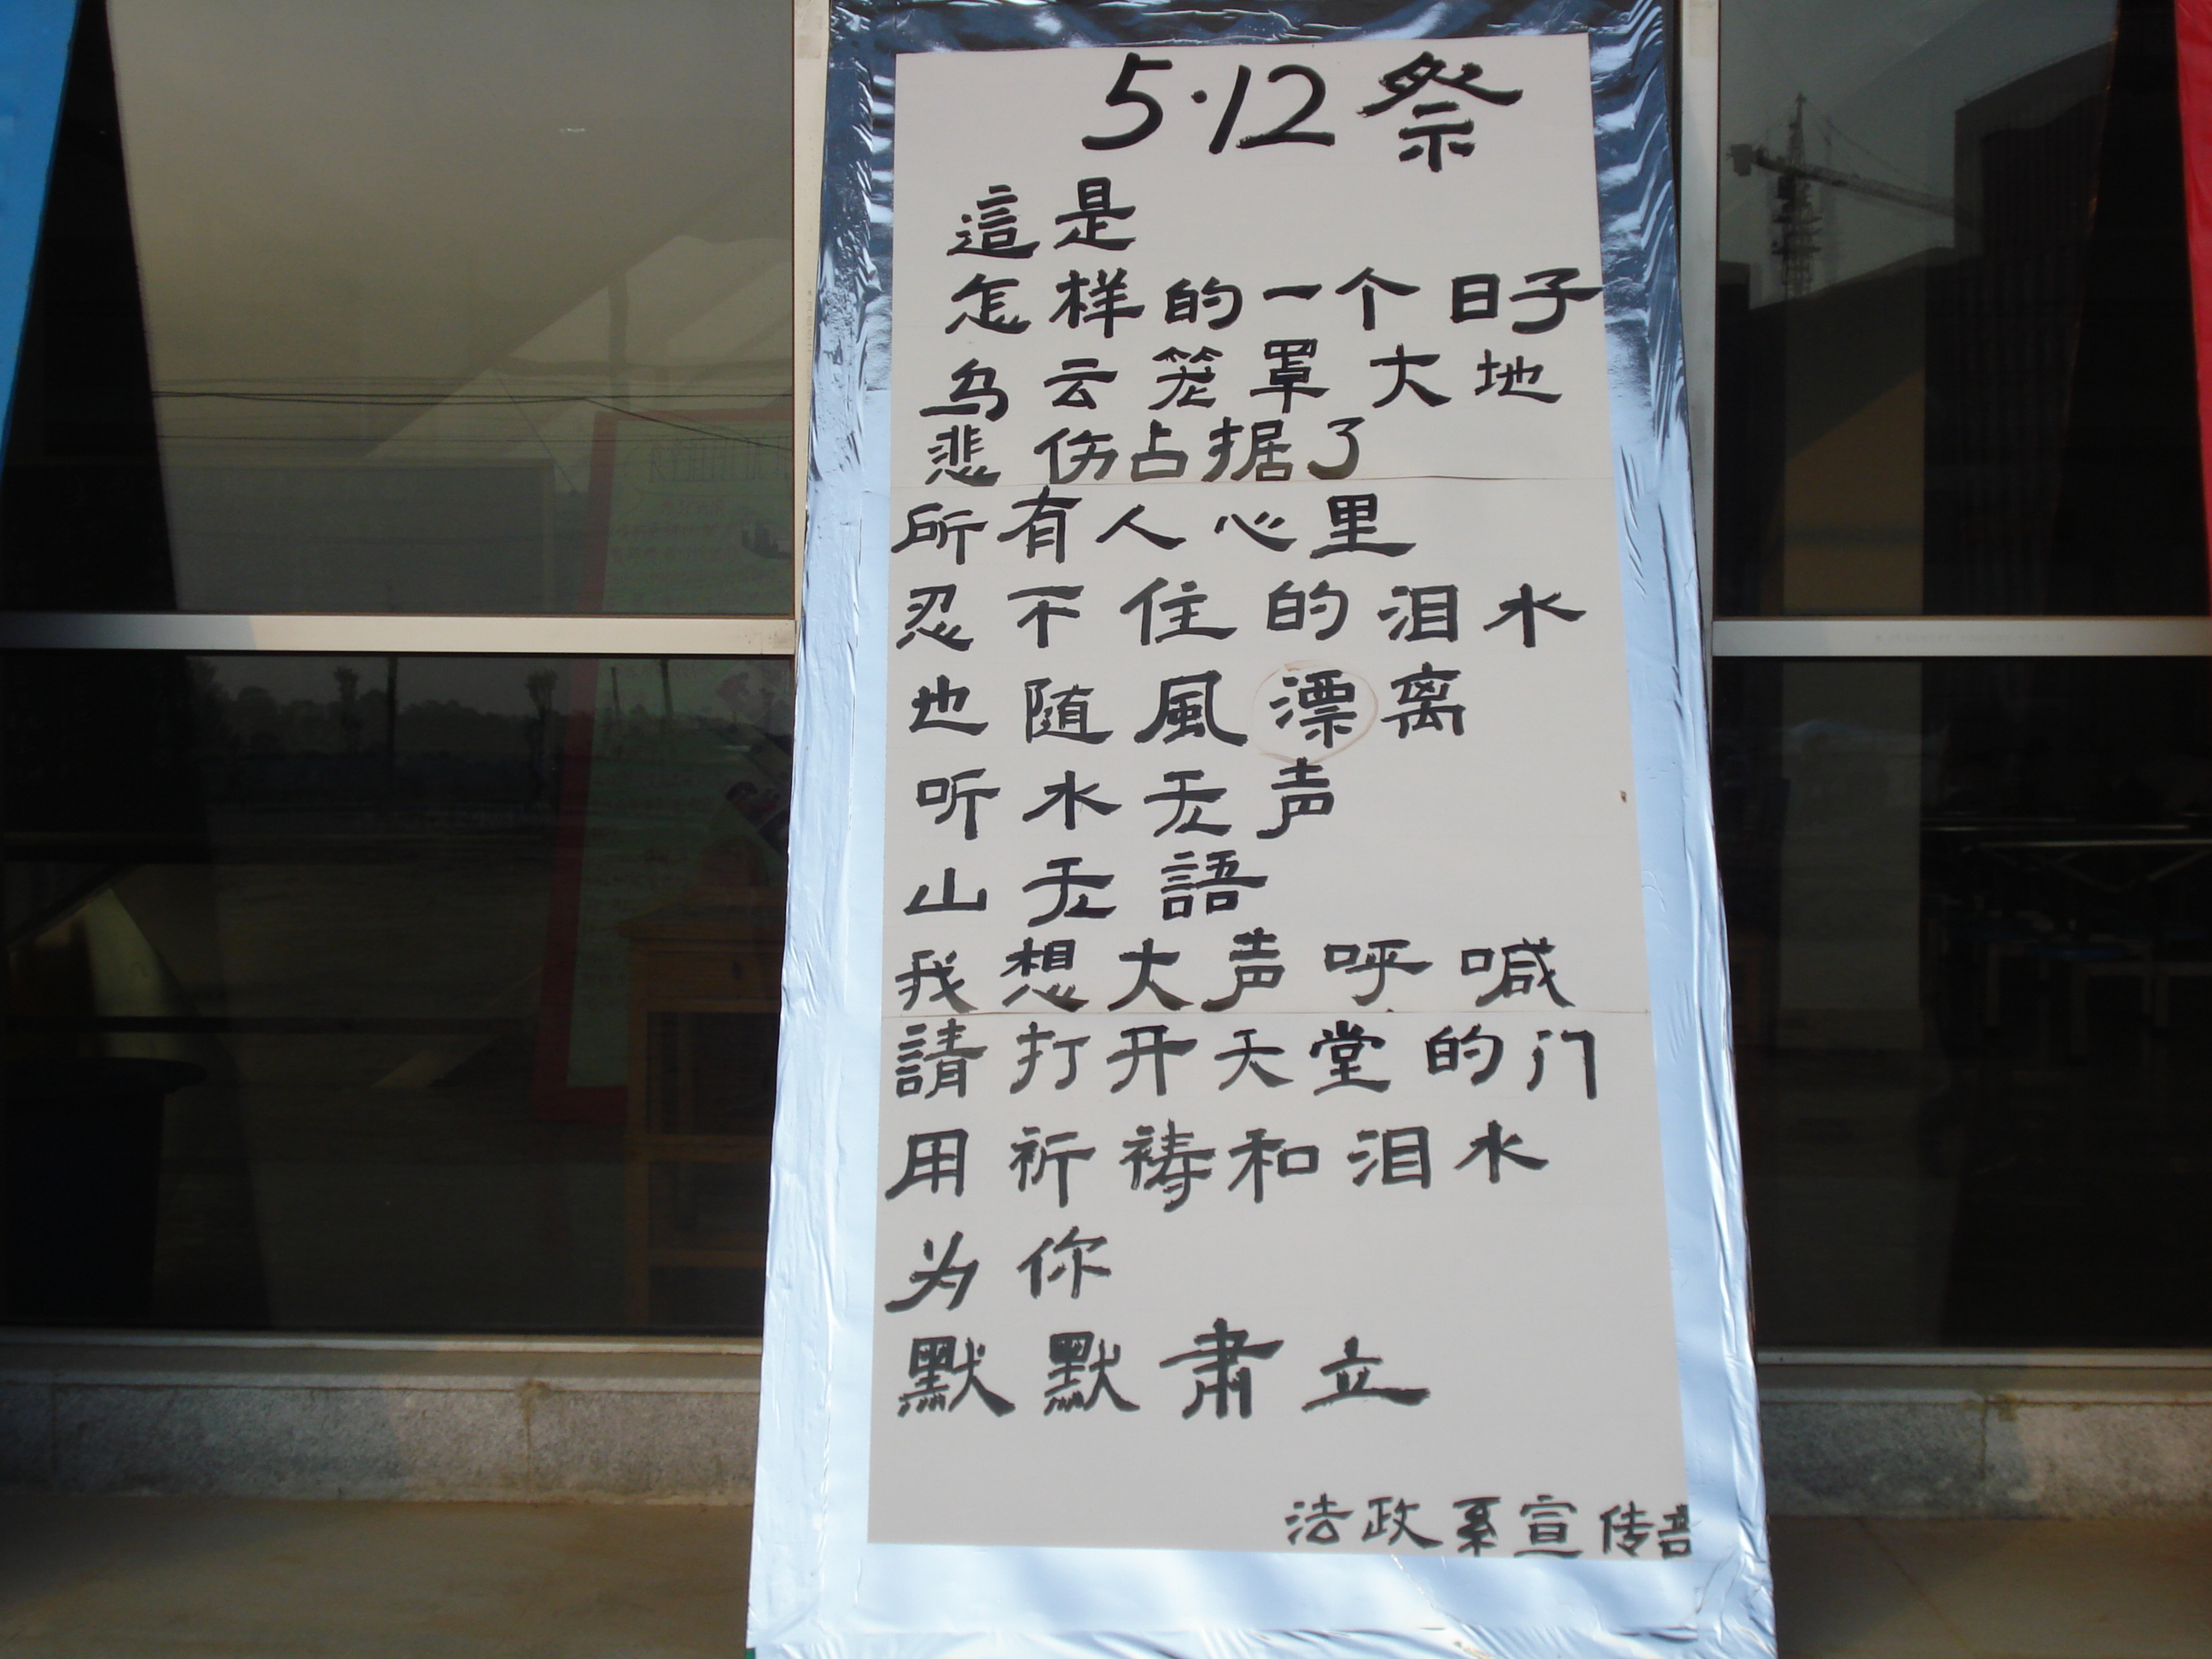 5·12 祭
這是
怎样的一个日子
乌云笼罩大地
悲伤占据了
所有人心里
忍不住的泪水
也随風漂离
听水无声
山无語
我想大声呼喊
請打开天堂的门
用祈祷和泪水
为你
默默肃立
法政系宣传